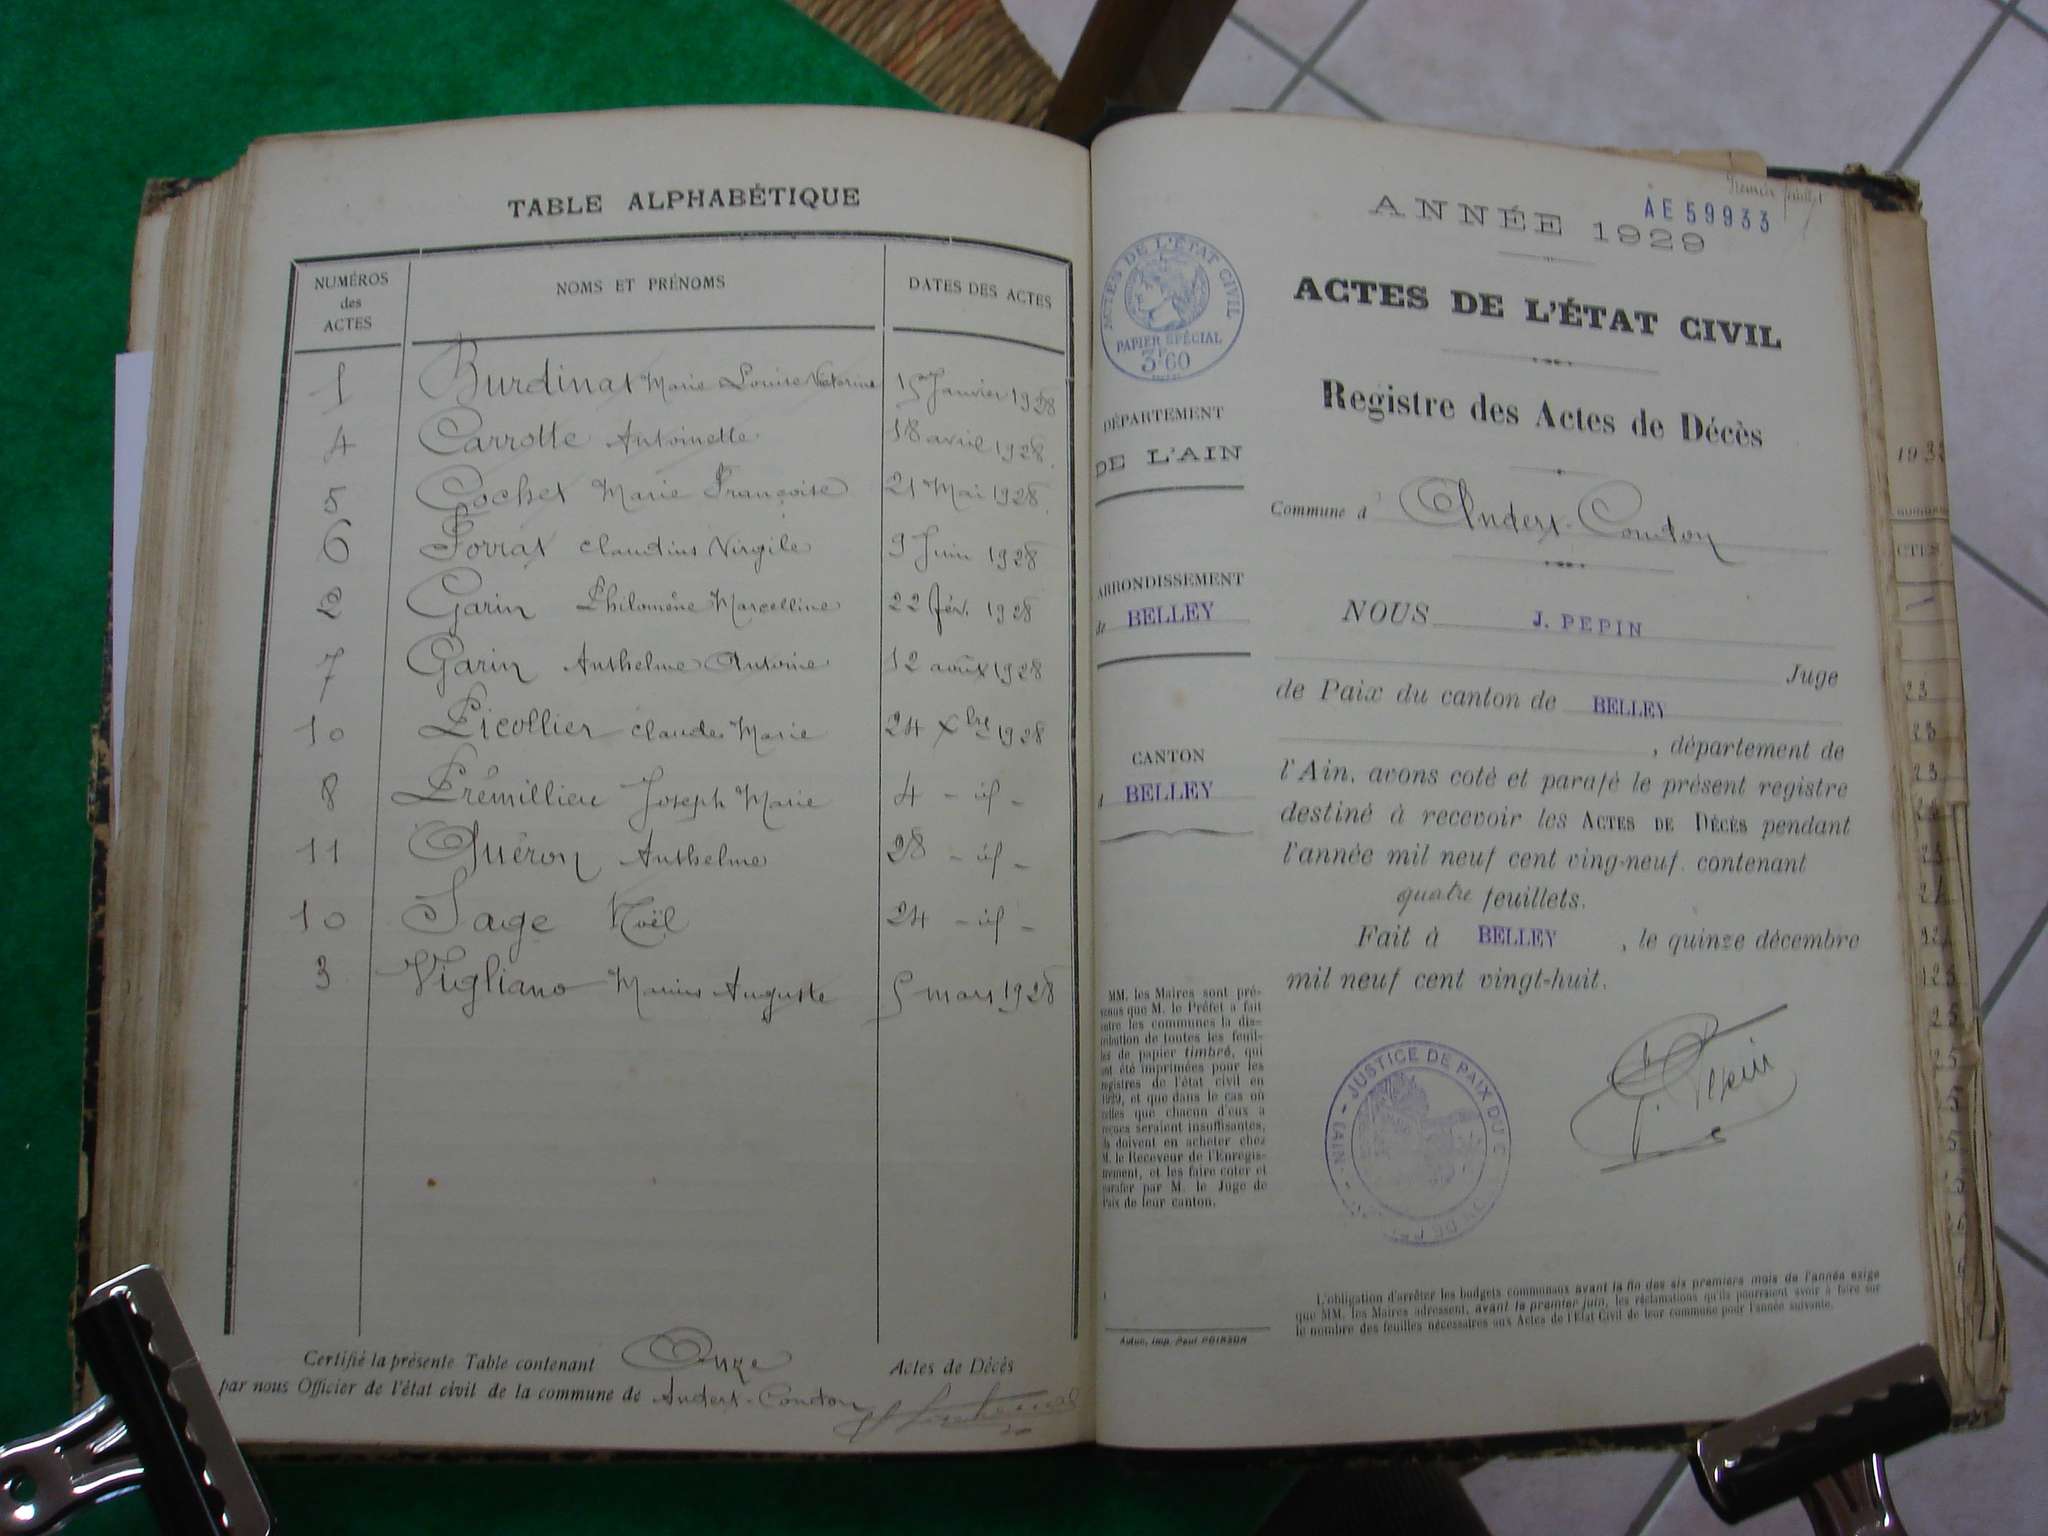 TABLE ALPHABÉTIQUE
NUMÉROS des ACTES NOMS ET PRÉNOMS DATES DES ACTES
1 Burdinat Marie Louise Victorine 15 Janvier 1928
4 Carrotte Antoinette 18 avril 1928
5 Cochet Marie Françoise 21 Mai 1928
6 Forrat Claudius Virgile 9 Juin 1928
2 Garin Philomène Marcelline 22 fév. 1928
7 Garin Anthelme Antoine 12 août 1928
10 Picollier Claudes Marie 24 Xbre 1928
8 Prémillieu Joseph Marie 4 - id -
11 Quéron Anthelme 28 - id -
10 Sage Noël 24 - id -
3 Vigliano Marius Auguste 5 mars 1928
Certifié la présente Table contenant Onze Actes de Décès
par nous Officier de l'état civil de la commune de Andert-Condon
Premier feuillet
AE 59933
ANNÉE 1929
ACTES DE L'ÉTAT CIVIL
PAPIER SPÉCIAL
3F60
ACTES DE L'ÉTAT CIVIL
Registre des Actes de Décès
DÉPARTEMENT
DE L'AIN
Commune d Andert-Condon
ARRONDISSEMENT
de BELLEY
CANTON
d BELLEY
NOUS J. PEPIN
Juge
de Paix du canton de BELLEY
, département de
l'Ain, avons coté et parafé le présent registre
destiné à recevoir les ACTES DE DÉCÈS pendant
l'année mil neuf cent ving-neuf. contenant
quatre feuillets.
Fait à BELLEY , le quinze décembre
mil neuf cent vingt-huit.
J. Pepin
JUSTICE DE PAIX DU C
(AIN)
MM. les Maires sont pré-
venus que M. le Préfet a fait
entre les communes la dis-
tribution de toutes les feuil-
les de papier timbré, qui
ont été imprimées pour les
registres de l'état civil en
1929, et que dans le cas où
celles que chacun d'eux a
reçues seraient insuffisantes,
ils doivent en acheter chez
M. le Receveur de l'Enregis-
trement, et les faire coter et
parafer par M. le Juge de
Paix de leur canton.
Autun, imp. Paul POIRSON
L'obligation d'arrêter les budgets communaux avant la fin des six premiers mois de l'année exige
que MM. les Maires adressent, avant le premier juin, les réclamations qu'ils pourraient avoir à faire sur
le nombre des feuilles nécessaires aux Actes de l'État Civil de leur commune pour l'année suivante.